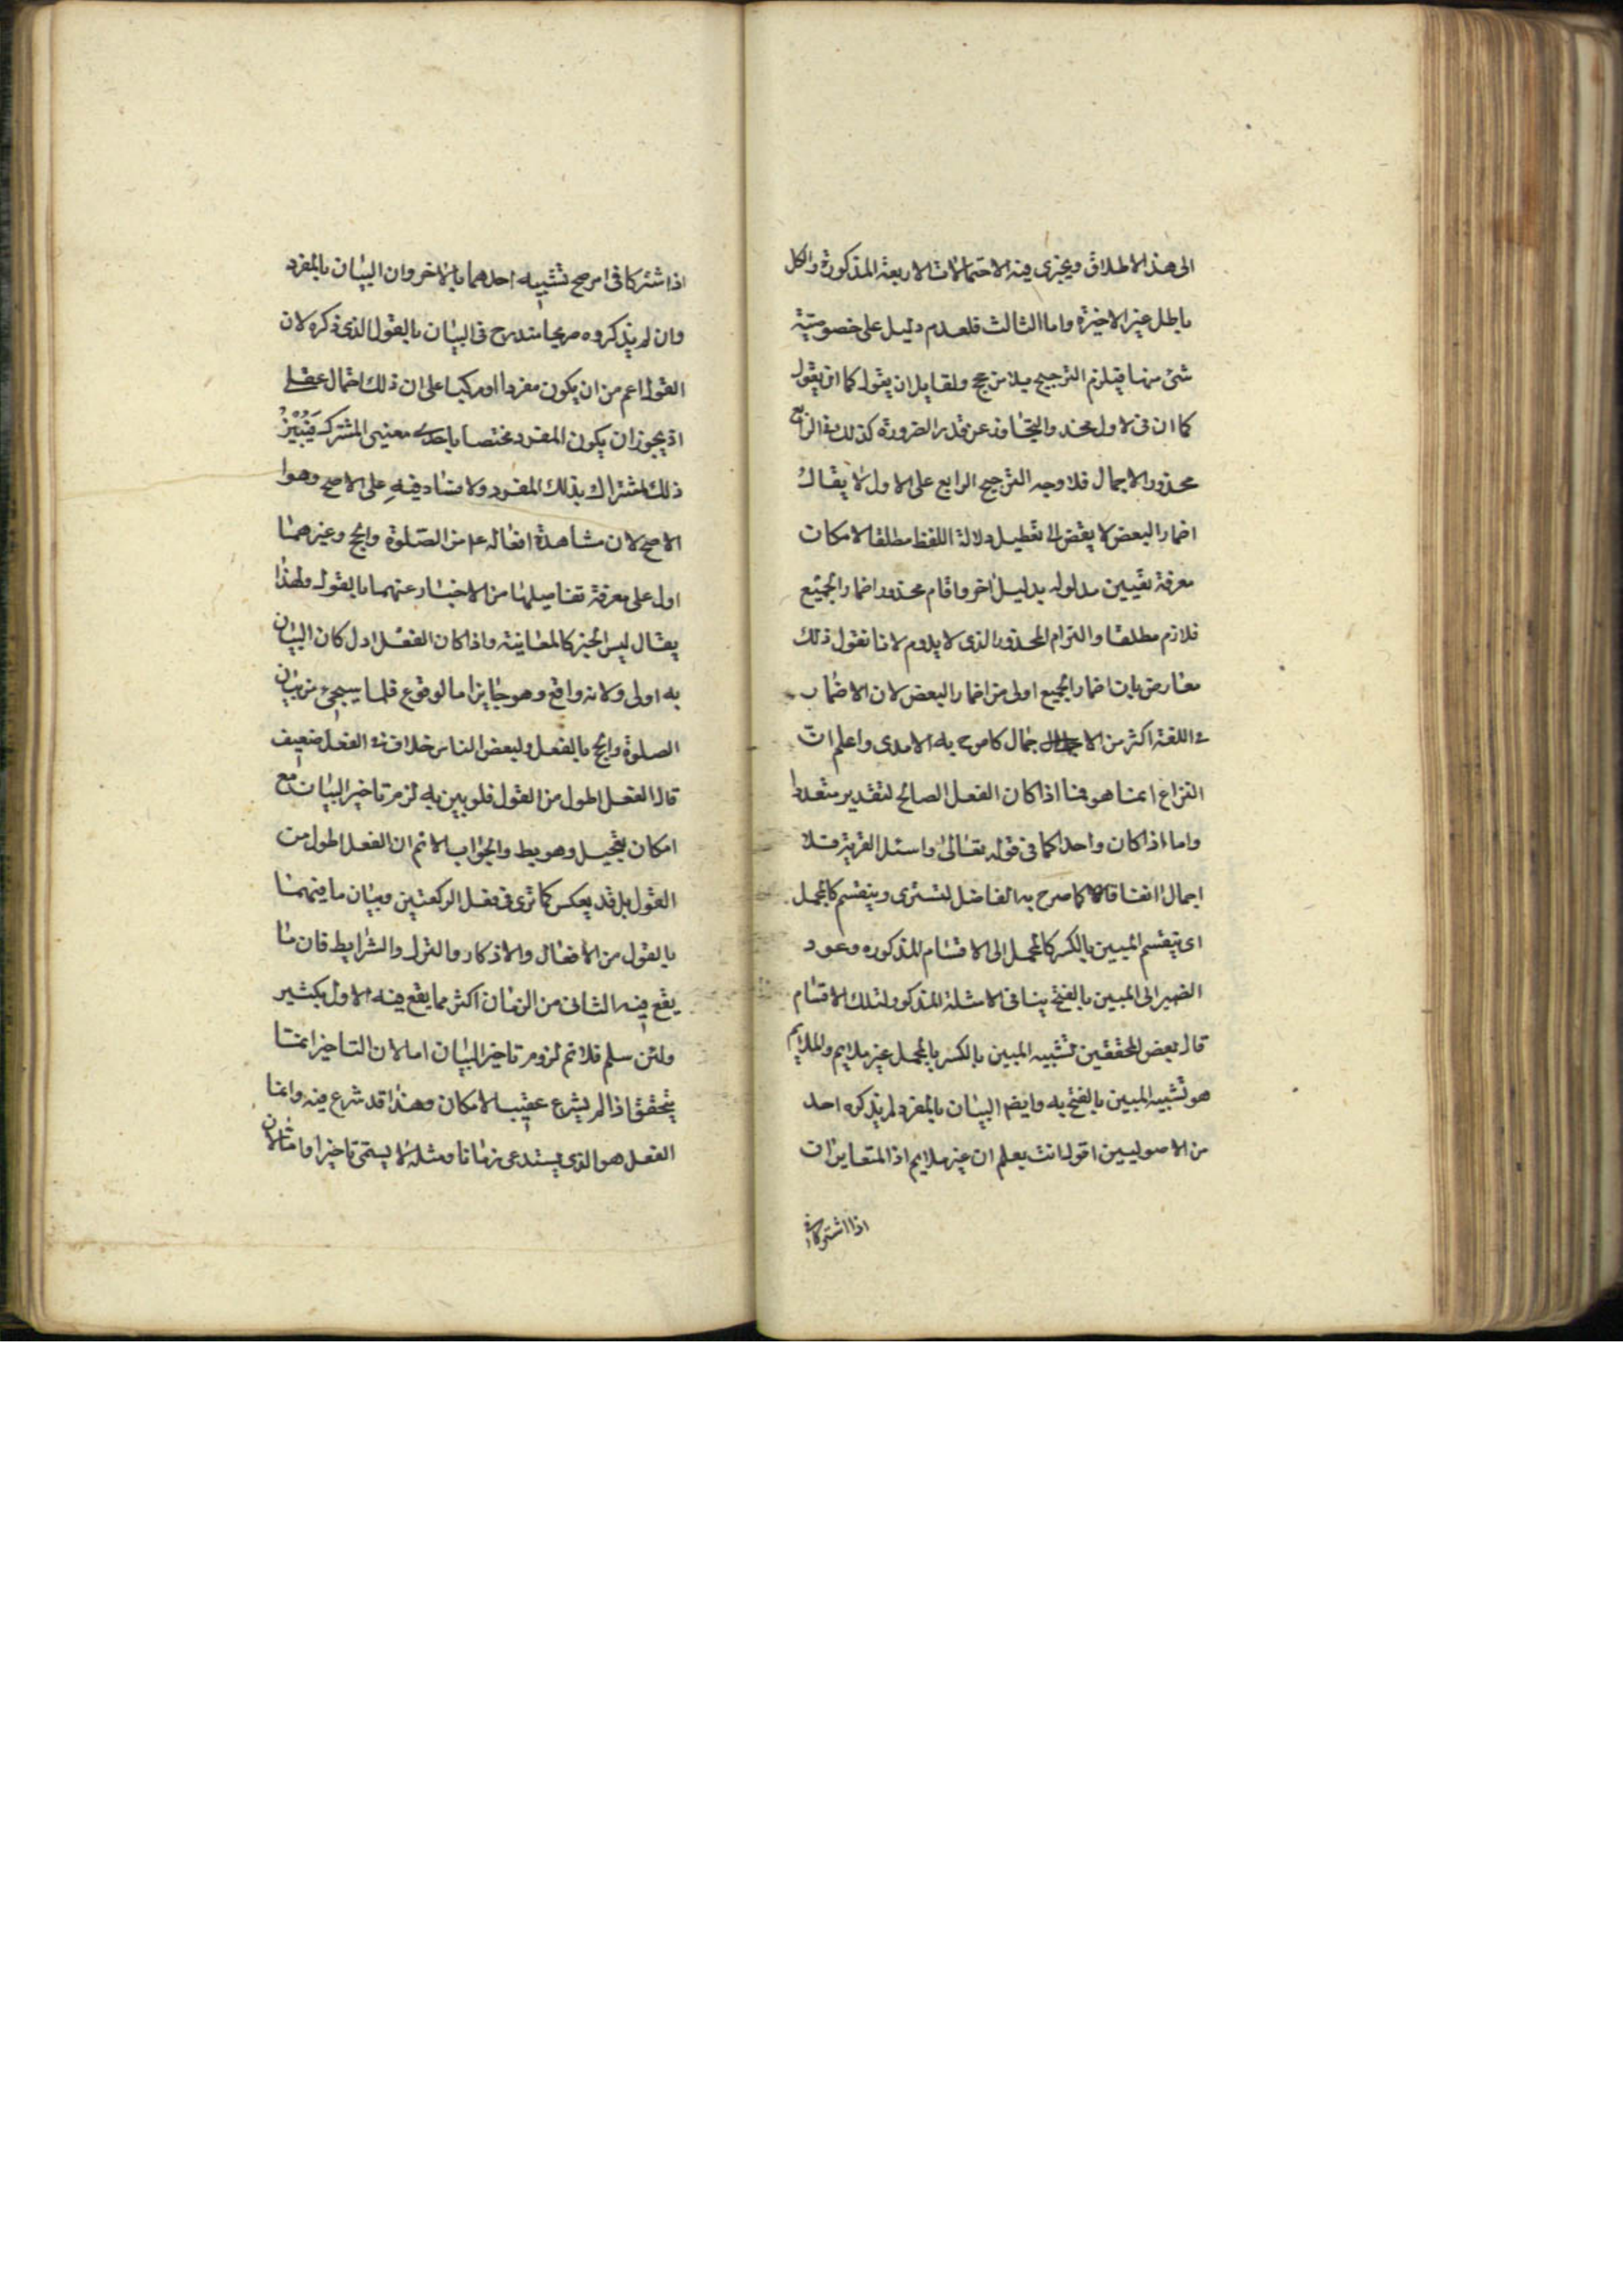 الى هذا الاطلاق ويجزى فيه الاحتمالات الاربعة المذكورة والكل
باطل غير الاخيرة واما الثالث فلعدم دليل على خصوصية
شئ منها فيلزم الترجيح بلا مرجح ولقايل ان يقول كما ان يقول
كما ان فى الاول محذور التجاوز عن قدر الضرورة كذلك فى الرابع
محذور الاجمال فلا وجه الترجيح الرابع على الاول لا يقال
اضمار البعض لا يفضى الى تعطيل دلالة اللفظ مطلقا لامكان
معرفة تعيين مدلوله بدليل اخر واقام محذور اضمار الجميع
فلازم مطلقا والتزام المحذور الذى لا يدوم لانا نقول ذلك
معارض بان اضمار الجميع اولى من اضمار البعض لان الاضمار
فى اللغة اكثر من الاجمال كما صرح به الامدى واعلم ان
النزاع انما هو فيما اذا كان الفعل الصالح لتقدير متعددا
واما اذا كان واحدا كما فى قوله تعالى واسئل القرية فلا
اجمال اتفاقا كما صرح به الفاضل التسترى وينقسم كالمجمل
اى ينقسم المبين بالكسر كالمجمل الى الاقسام المذكوره وعود
الضمير الى المبين بالفتح ينافى الامثلة المذكور لتلك الاقسام
قال بعض المحققين تشبيه المبين بالكسر بالمجمل غير ملايم والملايم
هو تشبيه المبين بالفتح به وايضا البيان بالمفرد لم يذكره احد
من الاصوليين اقول انت تعلم ان غير ملايم اذ المتغايران
اذا اشتركا فى
اذا شتركا فى امر صح تشبيه احدهما بالاخر وان البيان بالمفرد
وان لم يذكروه صريحا مندرج فى البيان بالقول الذى ذكره لان
القول اعم من ان يكون مفردا او مركبا على ان ذلك احتمال عقلى
اذ يجوز ان يكون المفرد مختصا باحدى معنيى المشترك فيبين
ذلك اشتراك بذلك المفرد ولا فساد فيه على الاصح وهوا
الاصح لان مشاهدة افعاله ع من الصلوة والحج وغيرهما
اول على معرفة تفاصيلها من الاخبار عنهما بالقول ولهذا
يقال ليس الخبر كالمعاينة واذا كان الفعل ادل كان البيان
به اولى ولانه واقع وهو جايز اما الوقوع فلما سيجئ من بيان
الصلوة والحج بالفعل ولبعض الناس خلاف فى الفعل ضعيف
قال الفعل اطول من القول فلو بين به لزم تاخير البيان مع
امكان تعجيل وهو بط والجواب لا نم ان الفعل اطول من
القول بل قد يعكس كما ترى فى فعل الركعتين وبيان ما فيهما
بالقول من الافعال والاذكار والتزل والشرايط فان ما
يقع فيه الثانى من الزمان اكثر مما يقع فيه الاول بكثير
ولئن سلم فلا نم لزوم تاخير البيان اما لان التاخير انما
يتحقق اذا لم يشرع عقيب الامكان وهذا قد شرع فيه وانما
الفعل هو الذى يستدعى زمانا ومثله لا يسمى تاخيرا واما لان